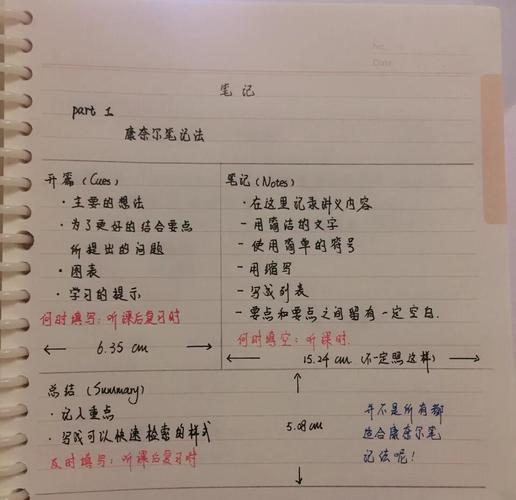 No.
Date
笔记
part 1
康奈尔笔记法
开篇 (Cues)
· 主要的想法
· 为了更好的结合要点
所提出的问题
· 图表
· 学习的提示
何时填写: 听课后复习时
6.35 cm
笔记 (Notes)
· 在这里记录讲义内容
- 用简洁的文字
- 使用简单的符号
- 用缩写
- 写成列表
- 要点和要点之间留有一定空白.
何时填空: 听课时.
15.24 cm (不一定照这样)
总结 (Summary)
· 记入重点
· 写成可以快速检索的样式
反时填写: 听课后复习时
5.08 cm
并不是所有都
适合康奈尔笔
记法呢!